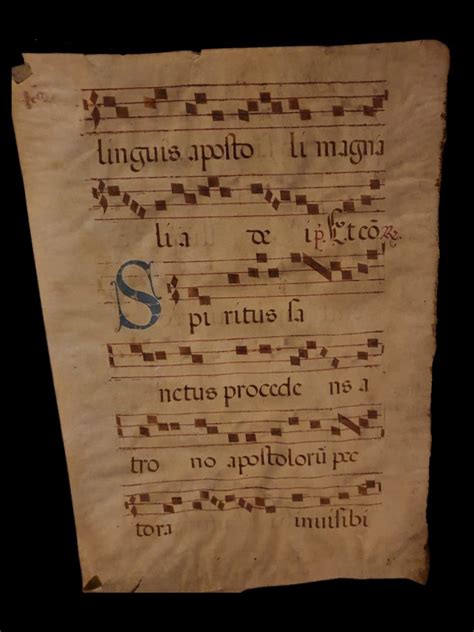 linguis aposto li magna
li a de i ℣ Et cō ℟
Spiritus sa
nctus procede ns a
tro no apostolorū pec
tora invisibi